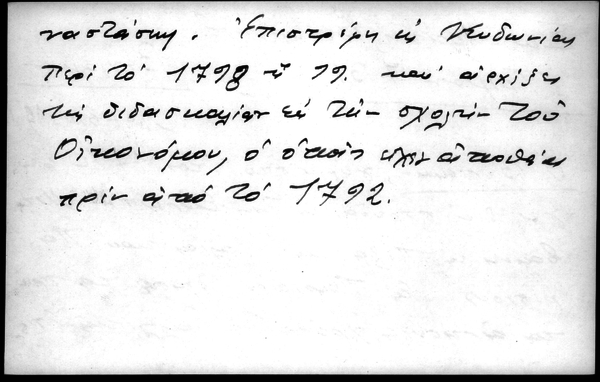 ναστάσης. Ἐπιστρέφει εἰς Κυδωνίας
περί τό 1798 ἤ 99. καί ἀρχίζει
τήν διδασκαλίαν εἰς τήν σχολήν τοῦ
Οἰκονόμου, ὁ ὁποῖος εἶχεν ἀποθάνει
πρίν ἀπό τό 1792.